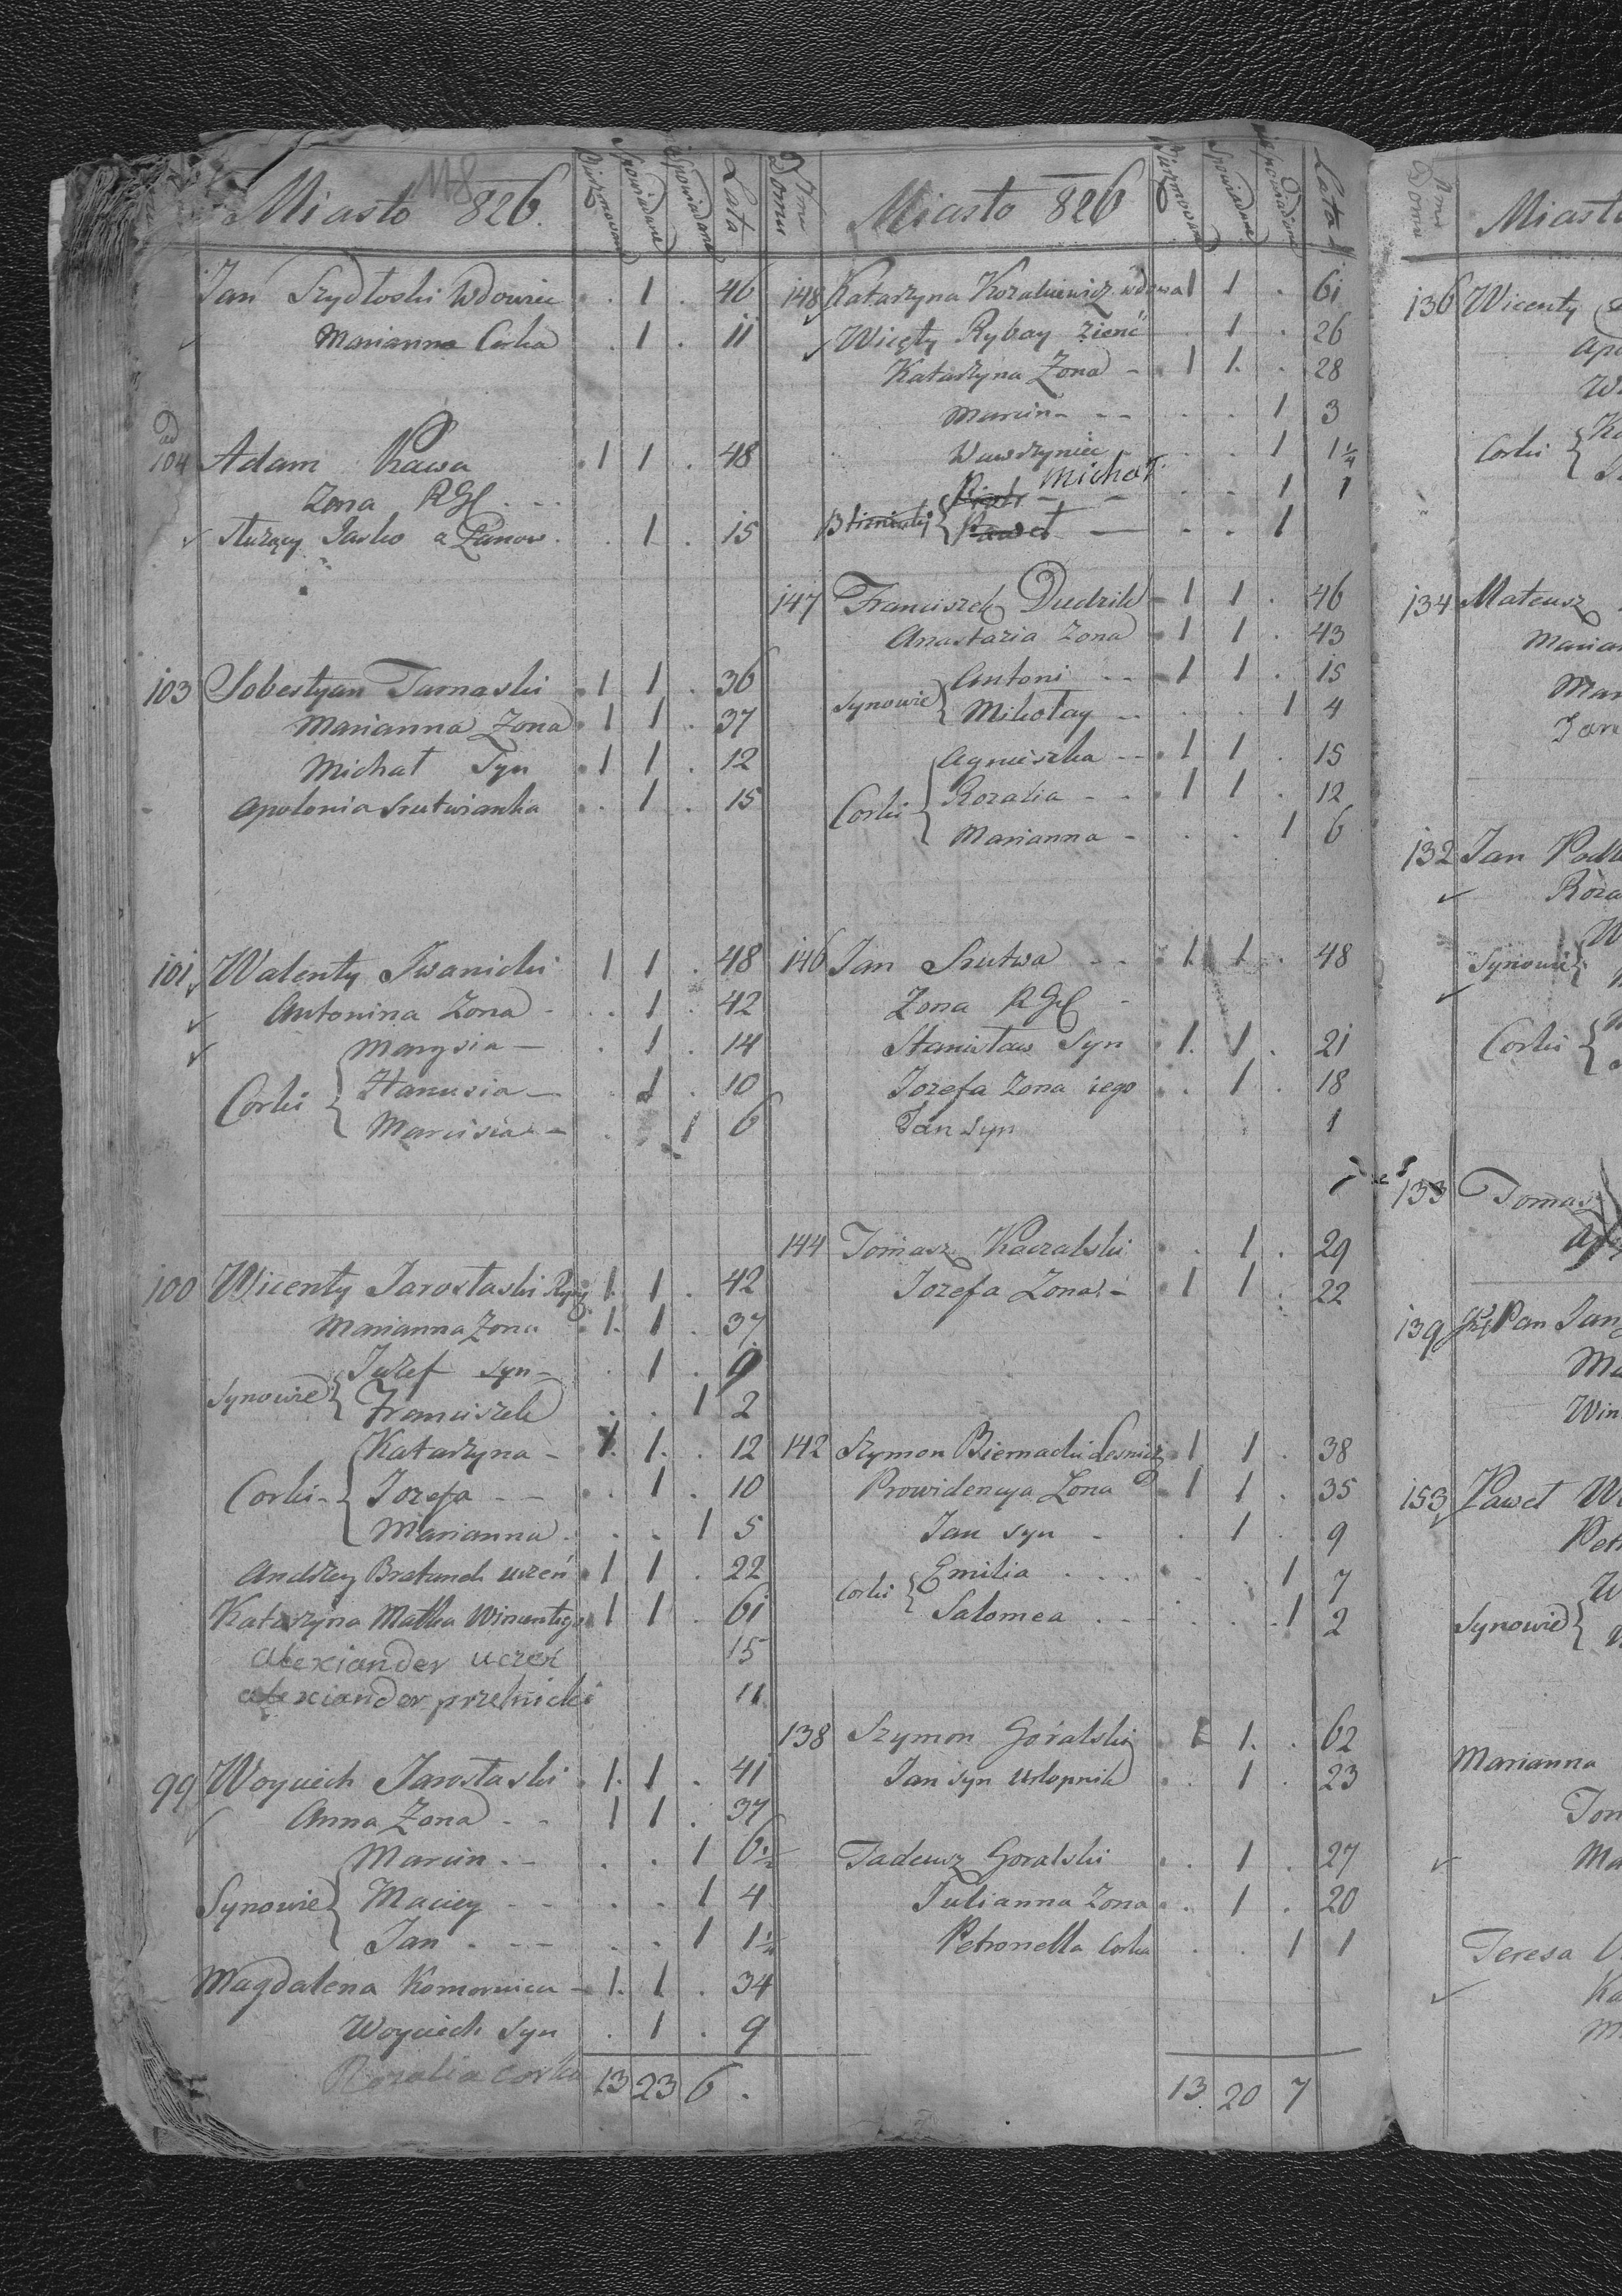 118
Miasto 826. Bierzmowani Spowiadane Lata
Jan Szydłoski Wdowiec . 1 . 46
Marianna Corka . 1 . 11
ad
104 Adam Kawa . 1 1 . 48
Zona RGC
służący Jasko a Zanow . . 1 . 15
103 Sobestyan Tarnaski . 1 1 . 36
Marianna Zona . 1 1 . 37
Michał Syn . 1 1 . 12
Apolonia Srutwianka . . 1 . 15
101 Walenty Iwanicki 1 1 . 48
Antonina Zona . . 1 . 42
Marysia . 1 . 14
Corki { Hanusia . 1 . 10
Marcisia . . 1 6
100 Wicenty Jarosłaski 1. 1 . 42
Marianna Zona . 1. 1 . 37
Juzef syn . 1 . 9
Synowie { Franciszek . . 1 2
Katarzyna 1. 1. . 12
Corki { Jozefa . . 1 . 10
Marianna . . 1 5
Andrzey Bratunek uczeń . 1 1 . 22
Katarzyna Matka Wincentego 1 1 . 61
alexiander uczeń 15
alexiander przelnicki 11
99 Woyciech Jarosłaski . 1. 1 . 41
Anna Zona . . 1 1 . 37
Marcin . . . 1 6½
Synowie { Maciey . . 1 4
Jan . . 1 1¼
Magdalena Komornica 1. 1 . 34
Woyciech syn . 1 . 9
Rozalia corka 13 23 6 .
Nro Domu Miasto 826 Bierzmowani Spowiadane Lata
148 Katarzyna Kozakiewicz wdowa 1 1 . 61
Więty Rybay zieńć . 1 . 26
Katarzyna Zona . 1 1. . 28
Marcin . . 1 3
Wawrzyniec . . 1 1¼
Piotr Michał . . 1 1
Bliźniaki { Paweł . . 1
147 Franciszek Dudzik 1 1 . 46
Anastazia Zona . 1 1 . 43
Antoni 1 1 . 15
Synowie { Mikołay . . 1 4
Agnieszka 1 1 . 15
Corki { Rozalia . 1 1 . 12
Marianna . . 1 6
146 Jan Srutwa . 1 1 . 48
Zona RGC
Stanisław Syn . 1. 1 . 21
Jozefa Zona iego . . 1 . 18
Jan syn 1
144 Tomasz Kaczalski . . 1 . 29
Jozefa Zona . 1 1 . 22
142 Szymon Biernacki Lesniczy 1 1 . 38
Prowidencya Zona . 1 1 . 35
Jan syn . 1 . 9
Emilia . . . 1 7
Corki { Salomea . . . 1 2
138 Szymon Goralski . 1 1. . 62
Jan syn Urlopnik . . 1 . 23
Tadeusz Goralski . . 1 . 27
Julianna Zona . . 1 . 20
Petronella Corka . . 1 1
13. 20 7
Nro Domu Miasto
136 Wicenty
Corki {
134 Mateusz
132 Jan
Synowie {
Corki {
133 Tomasz
139 Pan Jan
153 Paweł
Synowie {
Marianna
Teresa